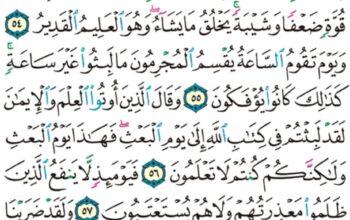 قُوَّةٍ ضَعْفًا وَشَيْبَةً ۚ يَخْلُقُ مَا يَشَاءُ ۖ وَهُوَ الْعَلِيمُ الْقَدِيرُ ٥٤
وَيَوْمَ تَقُومُ السَّاعَةُ يُقْسِمُ الْمُجْرِمُونَ مَا لَبِثُوا غَيْرَ سَاعَةٍ ۚ
كَذَٰلِكَ كَانُوا يُؤْفَكُونَ ٥٥ وَقَالَ الَّذِينَ أُوتُوا الْعِلْمَ وَالْإِيمَٰنَ
لَقَدْ لَبِثْتُمْ فِي كِتَٰبِ اللَّهِ إِلَىٰ يَوْمِ الْبَعْثِ ۖ فَهَٰذَا يَوْمُ الْبَعْثِ
وَلَٰكِنَّكُمْ كُنْتُمْ لَا تَعْلَمُونَ ٥٦ فَيَوْمَئِذٍ لَّا يَنْفَعُ الَّذِينَ
ظَلَمُوا مَعْذِرَتُهُمْ وَلَا هُمْ يُسْتَعْتَبُونَ ٥٧ وَلَقَدْ ضَرَبْنَا